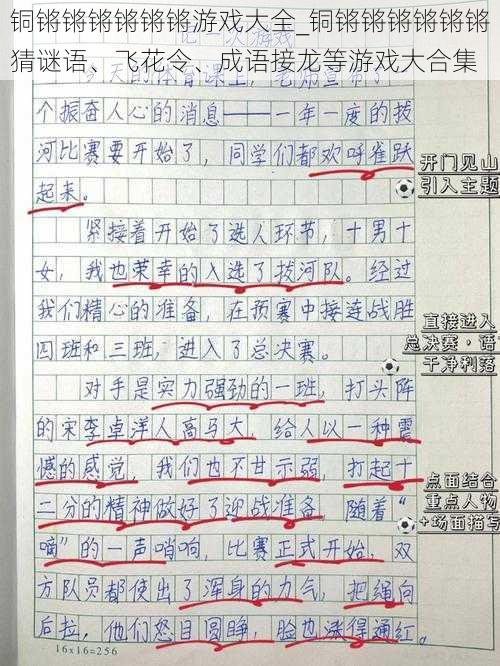 铜锵锵锵锵锵锵游戏大全_铜锵锵锵锵锵锵
猜谜语、飞花令、成语接龙等游戏大合集
今天的体育课上，老师宣布了一
个振奋人心的消息——一年一度的拔
河比赛要开始了，同学们都欢呼雀跃
起来。
开门见山
引入主题
紧接着开始了选人环节，十男十
女，我也荣幸的入选了拔河队。经过
我们精心的准备，在预赛中接连战胜
四班和三班，进入了总决赛。
直接进入
总决赛·语
干净利落
对手是实力强劲的一班，打头阵
的宋李卓洋人高马大，给人以一种震
憾的感觉，我们也不甘示弱，打起十
二分的精神做好了迎战准备。随着“
嘀”的一声哨响，比赛正式开始，双
方队员都使出了浑身的力气，把绳向
后拉，他们怒目圆睁，脸也涨得通红。
点面结合
重点人物
+场面描写
16×16=256